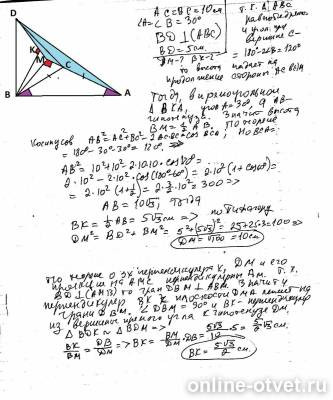 D
K
M
C
B
A
AC=BC=10см
∠A=∠B=30°
BD⊥(ABC)
BD=5см
DM-? BK-?
Т.к. ΔABC
равнобедрен
и угол при
вершине C-
=180°-2·30°=120°
то высота падает на
продолжение стороны AC
Тогда, в прямоугольном
угол A=30°, а AB-
гипотенуза. Значит высота
BM=½AB. По теореме
Косинусов AB²=AC²+BC²-
=180°-30°-30°=120°
AB²=10²+10²-2·10·10·cos120°=
2·10²-2·10²·cos(180°-60°)=2·10²(1+cos60°)=
=2·10²(1+½)=2·3/2·10²=300=>
AB=10√3, тогда
BK=½AB=5√3см=> по Пифагору
DM²=BD²+BM²=5²+(5√3)²=25+25·3=100=>
DM=√100=10см
По теореме о 3х перпендикулярах, DM и его
проекция на AMC перпендикулярны AM. Т.к.
BD⊥(AMB) то грань DBM⊥ABM. Значит
перпендикуляр BK к плоскости DMA лежит на
грани DBM. ∠DBM=90° и BK-перпендикуляр
из вершины прямого угла к гипотенузе DM.
ΔBDK~ΔBDM=>
BK/BM=DB/DM=>BK=BM/DM·DB=5√3/10·5=5/2√3см.
BK=5√3/2см
online-otvet.ru